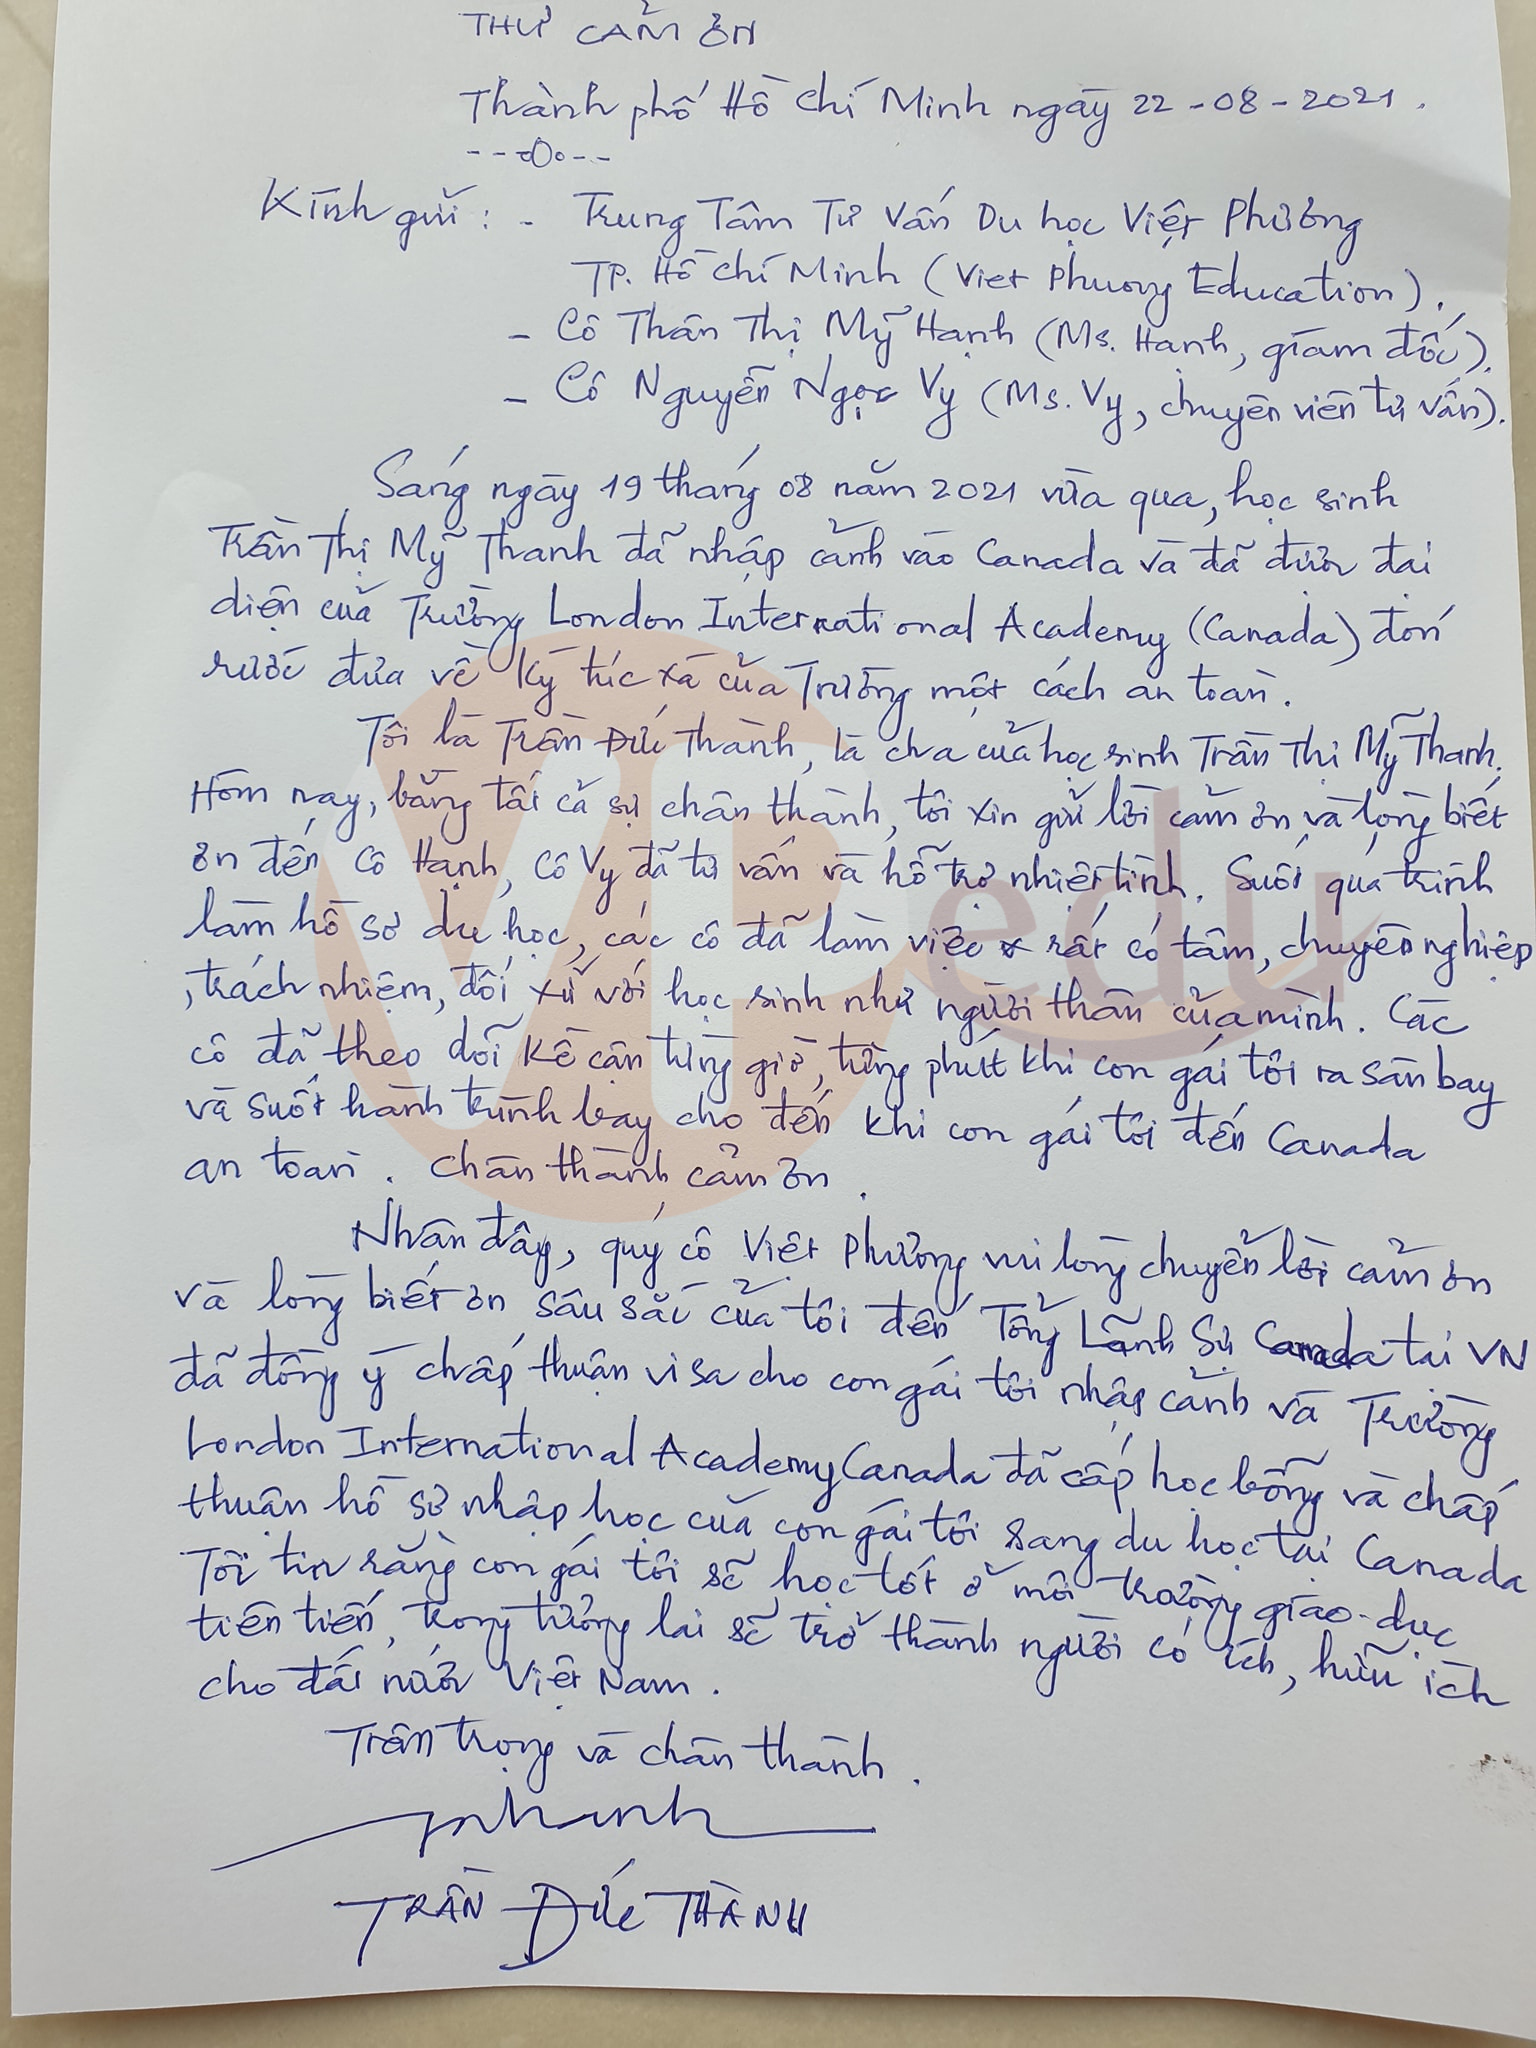 THƯ CẢM ƠN
Thành phố Hồ Chí Minh ngày 22-08-2021.
---o0o---
Kính gửi: - Trung Tâm Tư Vấn Du học Việt Phương
TP. Hồ Chí Minh (Viet Phuong Education).
- Cô Thân Thị Mỹ Hạnh (Ms. Hạnh, giám đốc).
- Cô Nguyễn Ngọc Vy (Ms. Vy, chuyên viên tư vấn).
Sáng ngày 19 tháng 08 năm 2021 vừa qua, học sinh
Trần Thị Mỹ Thanh đã nhập cảnh vào Canada và đã được đại
diện của Trường London International Academy (Canada) đón
rước đưa về ký túc xá của Trường một cách an toàn.
Tôi là Trần Đức Thành, là cha của học sinh Trần Thị Mỹ Thanh.
Hôm nay, bằng tất cả sự chân thành, tôi xin gửi lời cảm ơn và lòng biết
ơn đến cô Hạnh, cô Vy đã tư vấn và hỗ trợ nhiệt tình. Suốt quá trình
làm hồ sơ du học, các cô đã làm việc rất có tâm, chuyên nghiệp
, trách nhiệm, đối xử với học sinh như người thân của mình. Các
cô đã theo dõi kề cận từng giờ, từng phút khi con gái tôi ra sân bay
và suốt hành trình bay cho đến khi con gái tôi đến Canada
an toàn. Chân thành cảm ơn.
Nhân đây, quý cô Việt Phương vui lòng chuyển lời cảm ơn
và lòng biết ơn sâu sắc của tôi đến Tổng Lãnh Sự Canada tại VN
đã đồng ý chấp thuận visa cho con gái tôi nhập cảnh và Trường
London International Academy Canada đã cấp học bổng và chấp
thuận hồ sơ nhập học của con gái tôi sang du học tại Canada
Tôi tin rằng con gái tôi sẽ học tốt ở môi trường giáo dục
tiên tiến, trong tương lai sẽ trở thành người có ích, hữu ích
cho đất nước Việt Nam.
Trân trọng và chân thành.
TRẦN ĐỨC THÀNH
VP edu